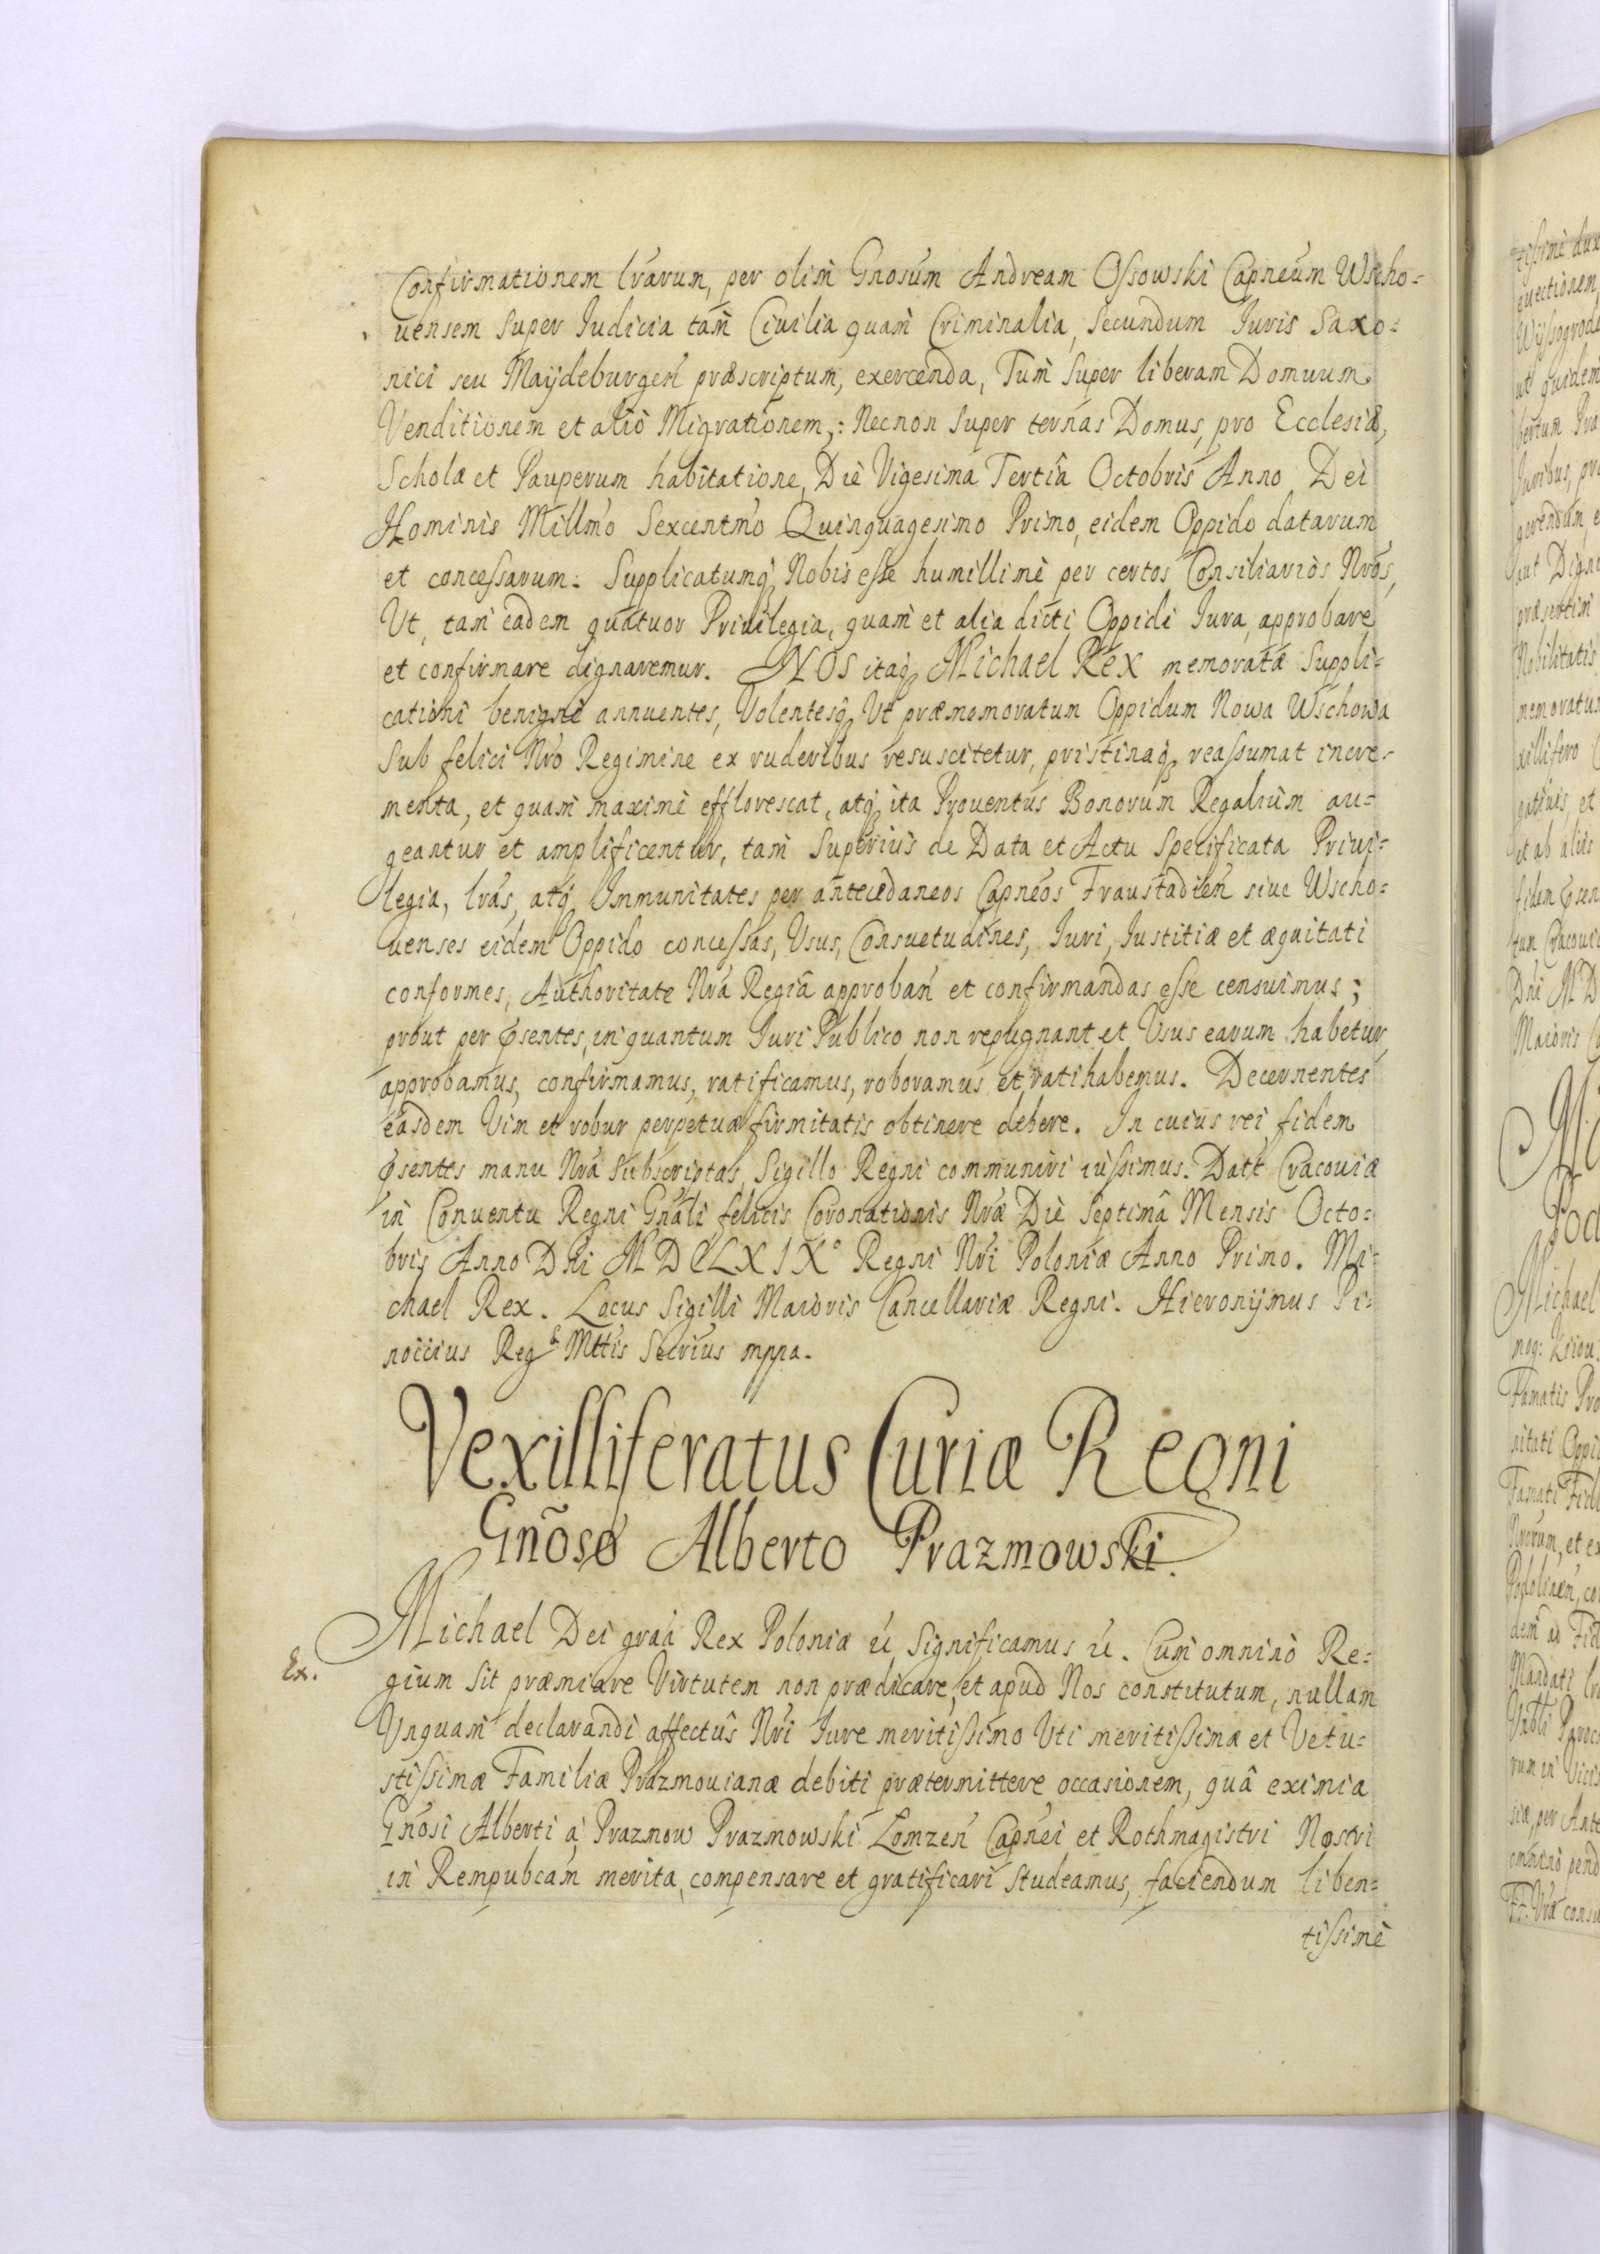 Confirmationem lrarum, per olim Gnosum Andream Ossowski Capneum Wscho=
uensem super Iudicia tam Ciuilia quam Criminalia, secundum Iuris Saxo=
nici seu Maydeburgen præscriptum, exercenda, Tum super liberam Domuum
Venditionem et alio Migrationem,: Necnon super ternas Domus, pro Ecclesiæ,
Scholæ et Pauperum habitatione, Die Vigesima Tertiâ Octobris Anno Dei
Hominis Millmo Sexcentmo Quinquagesimo Primo, eidem Oppido datarum
et concessarum. Supplicatumq, Nobis esse humillimè per certos Consiliariòs Nros,
Ut, tam eadem quatuor Priuilegia, quam et alia dicti Oppidi Iura, approbare
et confirmare dignaremur. NOS itaq, Michael Rex memoratæ Suppli=
cationi benigne annuentes, Volentesq, Ut præmemoratum Oppidum Nowa Wschowa
Sub felici Nro Regimine ex ruderibus resuscitetur, pristinaq, reassumat incre=
menta, et quam maximè efflorescat, atq, ita Prouentus Bonorum Regalium au=
geantur et amplificentur, tam superius de Data et Actu specificata Priui=
legia, lras, atq, Immunitates per antecedaneos Capneos Fraustadien siue Wscho=
uenses eidem Oppido concessas, Usus, Consuetudines, Iuri, Iustitiæ et æquitati
conformes, Authoritate Nra Regiâ approban et confirmandas esse censuimus;
prout per psentes, in quantum Iuri Publico non repugnant et Usus earum habetur,
approbamus, confirmamus, ratificamus, roboramus et ratihabemus. Decernentes
easdem Vim et robur perpetuæ firmitatis obtinere debere. In cuius rei fidem
psentes manu Nra subscriptas, Sigillo Regni communiri iussimus. Datt Cracouiæ
in Conuentu Regni Gnali felicis Coronationis Nræ Die Septimâ Mensis Octo=
bris Anno Dni MDCLXIX° Regni Nri Poloniæ Anno Primo. Mi=
chael Rex. Locus Sigilli Maioris Cancellariæ Regni. Hieronymus Pi=
noccius Reg Mttis Secrius mppa.
Vexilliferatus Curiæ Regni
Gñoso Alberto Prazmowski.
Michael Dei graa Rex Poloniæ Significamus Cum omnino Re=
Ex.
gium sit præmiare Virtutem non prædicare, et apud Nos constitutum, nullam
Unquam declarandi affectûs Nri Iure meritissimo Uti meritissimæ et Vetu=
stissimæ Familiæ Prazmouianæ debiti prætermittere occasionem, quâ eximia
Gnosi Alberti à Prazmow Prazmowski Lomzen Capnei et Rothmagistri Nostri
in Rempubcam merita, compensare et gratificari studeamus, faciendum liben=
tissimè